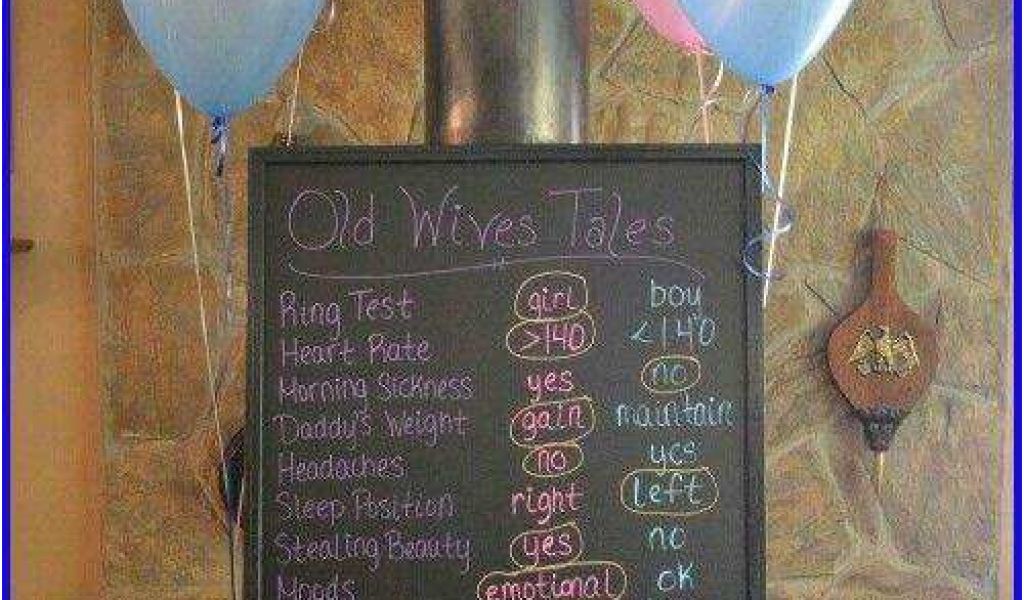 Old Wives Tales
Ring Test girl boy
Heart Rate >140 <140
Morning Sickness yes no
Daddy's Weight gain maintain
Headaches no yes
Sleep Position right left
Stealing Beauty yes no
Moods emotional ok